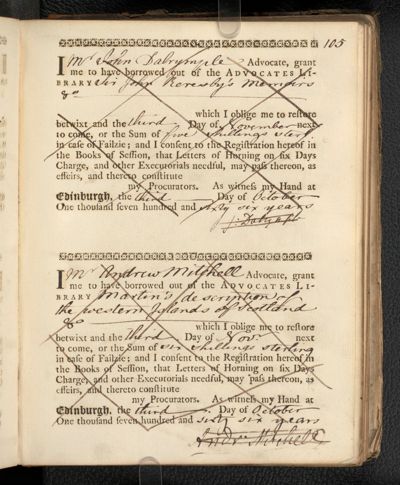 105
I Mr John Dalrymple Advocate, grant
me to have borrowed out of the ADVOCATES LI-
BRARY Sir John Reresby's Memoirs
8vo
which I oblige me to restore
betwixt and the third Day of November next
to come, or the Sum of five shillings sterl.
in case of Failzie; and I consent to the Registration hereof in
the Books of Session, that Letters of Horning on six Days
Charge, and other Executorials needful, may pass thereon, as
effeirs, and thereto constitute
my Procurators. As witness my Hand at
Edinburgh, the third Day of October
One thousand seven hundred and sixty six years
J: Dalrymple
I Mr Andrew Mitchell Advocate, grant
me to have borrowed out of the ADVOCATES LI-
BRARY Martin's description of
the western Islands of Scotland
8vo which I oblige me to restore
betwixt and the third Day of Novr. next
to come, or the Sum of six shillings sterling
in case of Failzie; and I consent to the Registration hereof in
the Books of Session, that Letters of Horning on six Days
Charge, and other Executorials needful, may pass thereon, as
effeirs, and thereto constitute
my Procurators. As witness my Hand at
Edinburgh, the third Day of October
One thousand seven hundred and sixty six years
Andw Mitchell